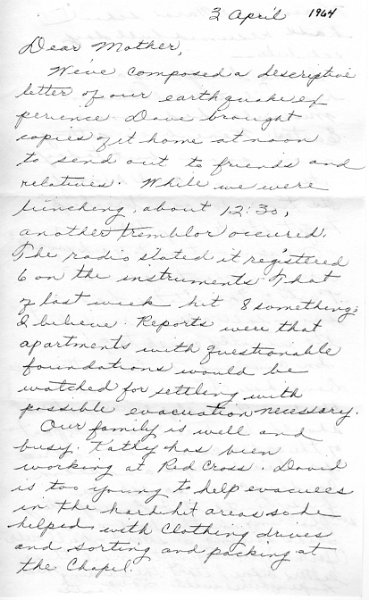 3 April 1964
Dear Mother,
We've composed a descriptive
letter of our earthquake ex
perience. Dave brought
copies of it home at noon
to send out to friends and
relatives. While we were
lunching, about 12:30,
another tremblor occured.
The radio stated it registered
6 on the instruments. That
of last week hit 8 something,
I believe. Reports were that
apartments with questionable
foundations would be
watched for settling with
possible evacuation necessary.
Our family is well and
busy. Kathy has been
working at Red Cross. David
is too young to help evacuees
in the hard hit areas so he
helped with clothing drives
and sorting and packing at
the Chapel.